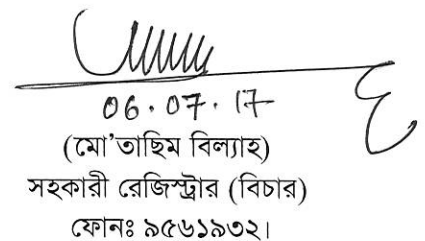 06.07.17
(মো'তাছিম বিল্যাহ)
সহকারী রেজিস্ট্রার (বিচার)
ফোনঃ ৯৫৬১৯৩২।